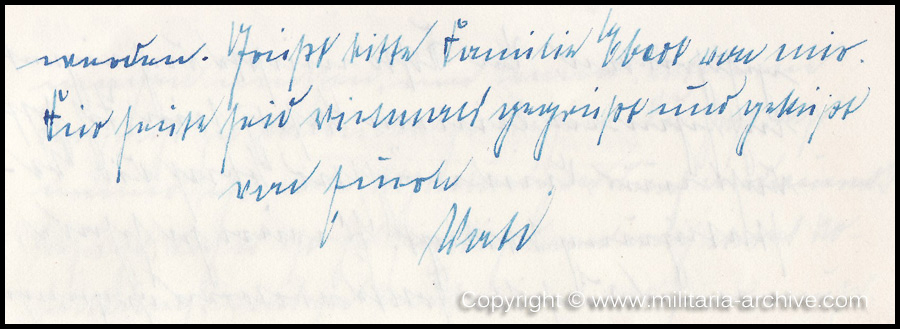 werden. Grüßt bitte Familie Ebert von mir.
Für heute seid vielmals gegrüßt und geküßt
von Eurem
Vati
Copyright © www.militaria-archive.com